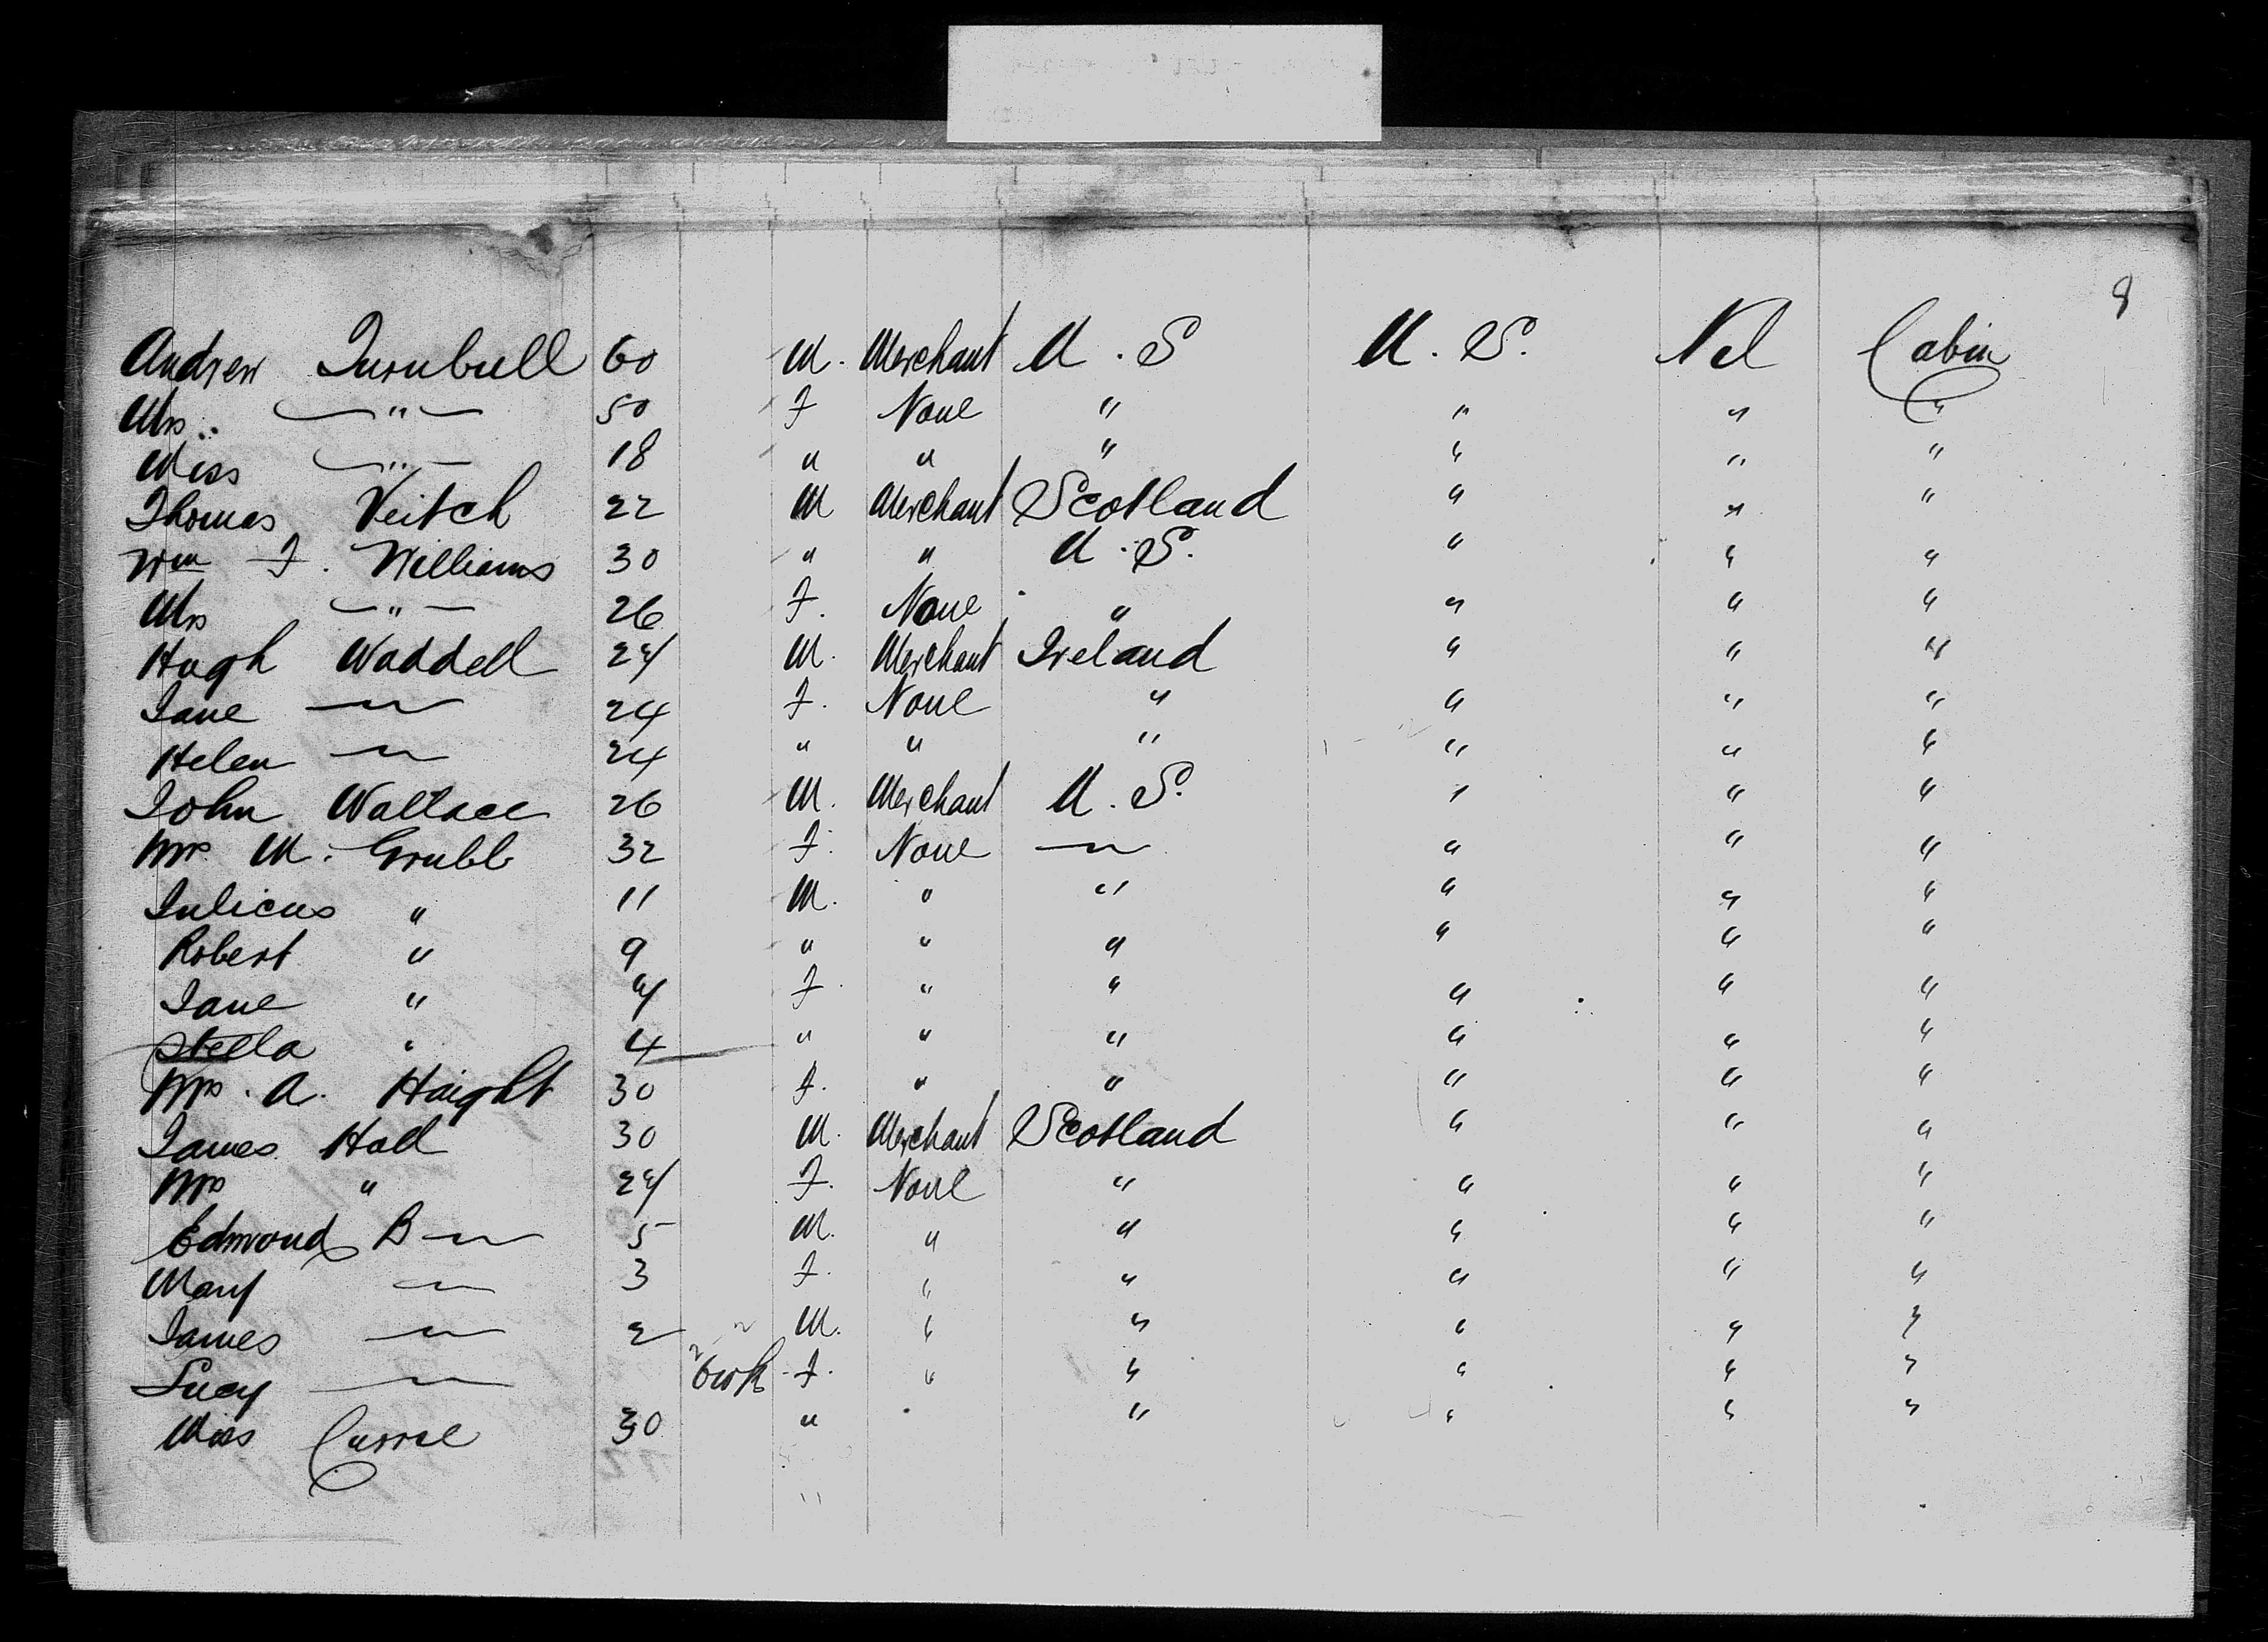 8
Andrew Turnbull 60 M. Merchant U. S U. S. Nil Cabin
Mrs " 50 F None " " " "
Miss " 18 " " " " " "
Thomas Veitch 22 M Merchant Scotland " " "
Wm J. Williams 30 " " U. S. " " "
Mrs " 26 F. None " " " "
Hugh Waddell 24 M. Merchant Ireland " " "
Jane " 24 F. None " " " "
Helen " 24 " " " " " "
John Wallace 26 M. Merchant U. S. " " "
Mrs M. Grubb 32 F. None " " " "
Julicus " 11 M. " " " " "
Robert " 9 " " " " " "
Jane " F. " " " " "
Stella " 4 " " " " " "
Mrs. A. Haight 30 F. " " " " "
James Hall 30 M. Merchant Scotland " " "
Mrs " 24 F. None " " " "
Edmond B " 5 M. " " " " "
Mary " 3 F. " " " " "
James " 2 M. " " " " "
Lucy " F. " " " " "
Miss Currie 30 " " " " " "